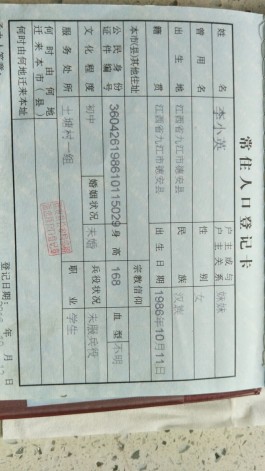 常住人口登记卡
姓 名 李小英 户主或与户主关系
曾用名 性别 女
出生地 江西省九江市德安县 民族 汉族
籍贯 江西省九江市德安县 出生日期 1986年10月11日
本市(县)其他住址 宗教信仰
公民身份证件编号 360426198610115029 身高 168 血型 不明
文化程度 初中 婚姻状况 未婚 兵役状况 未服兵役
服务处所 土塘村一组 职业 学生
何时由何地迁来本市(县)
何时由何地迁来本址
登记日期: 年 月 日